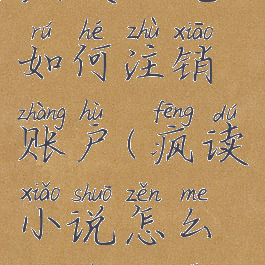 rú hé zhù xiāo
如何注销
zhàng hù fēng dú
账户(疯读
xiǎo shuō zěn me
小说怎么